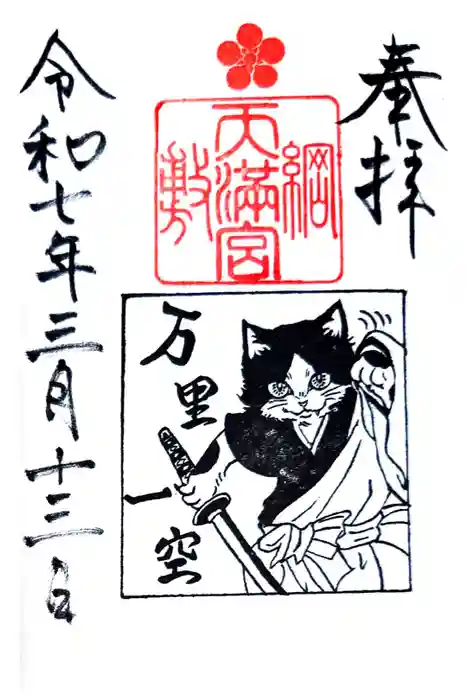 奉拝
綱敷
天満宮
万里一空
令和七年三月十三日